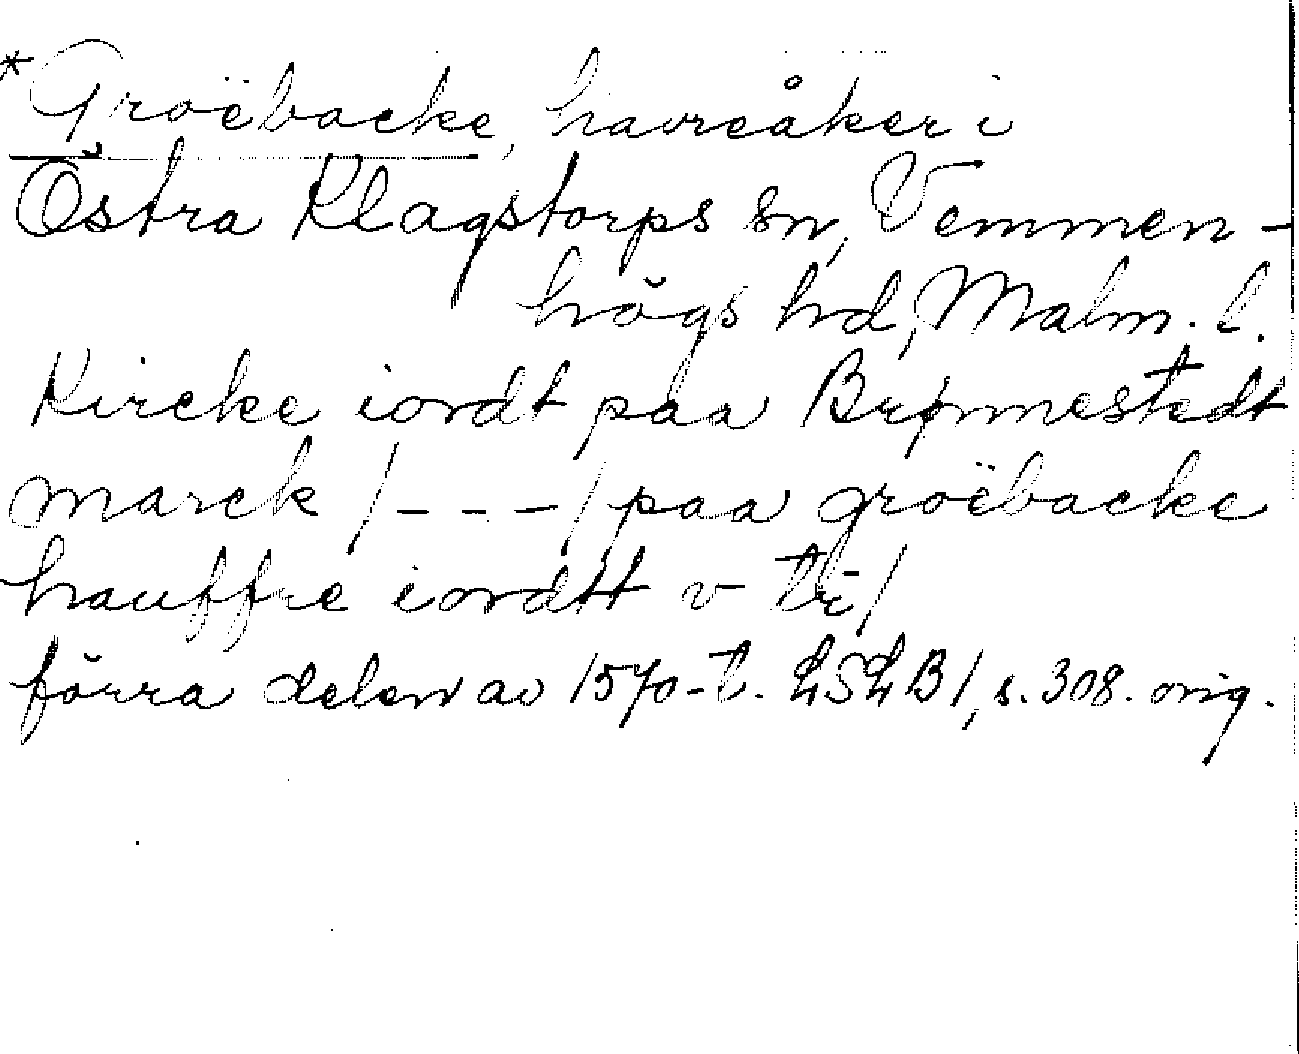 *Groëbacke, havreåker i
Östra Klagstorps sn, Vemmen-
högs hd, Malm. l.
Kircke iordt paa Brønnestedt
marck /---/ paa groëbacke
hauffre iordtt v
förra delen av 1570-t. LSLB 1, s. 308. orig.